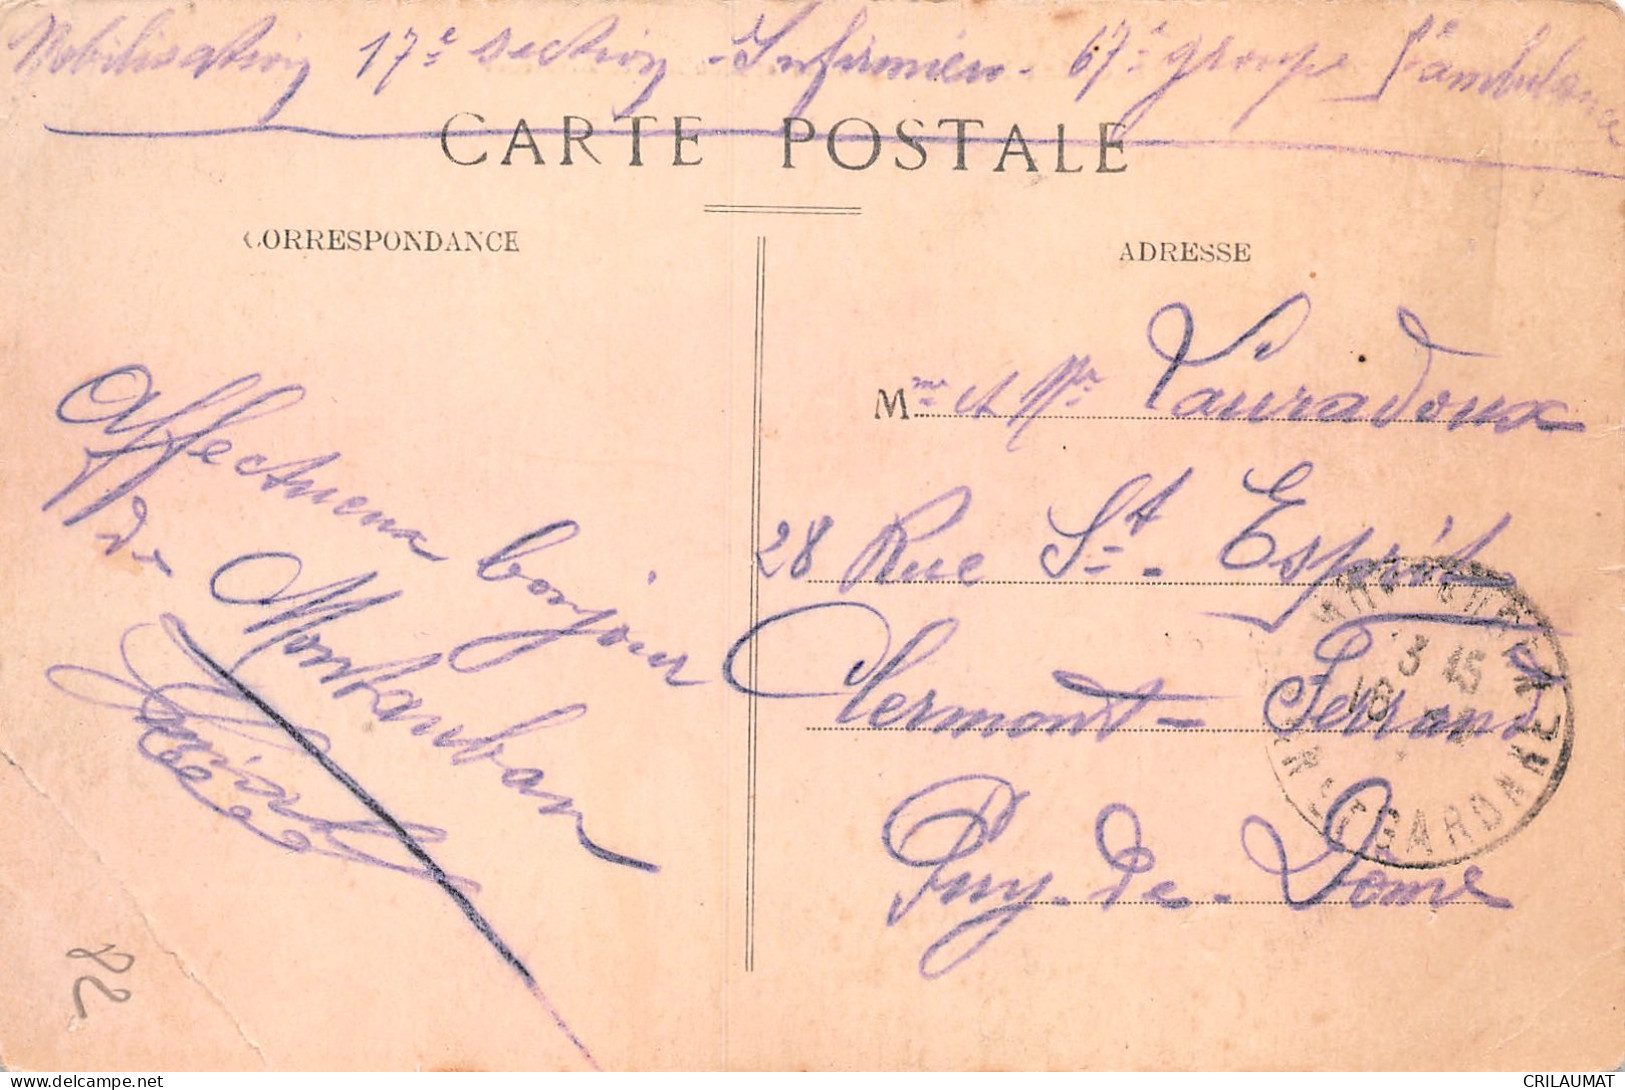 Mobilisation 17e section - Infirmiers - 67e groupe d'ambulance
CARTE POSTALE
CORRESPONDANCE
ADRESSE
Affectueux bonjour
de Montauban
Mme et Mr Lauradoux
28 Rue St. Esprit
Clermont-Ferrand
Puy-de-Dôme
3 15
GARONNE
22
CRILAUMAT